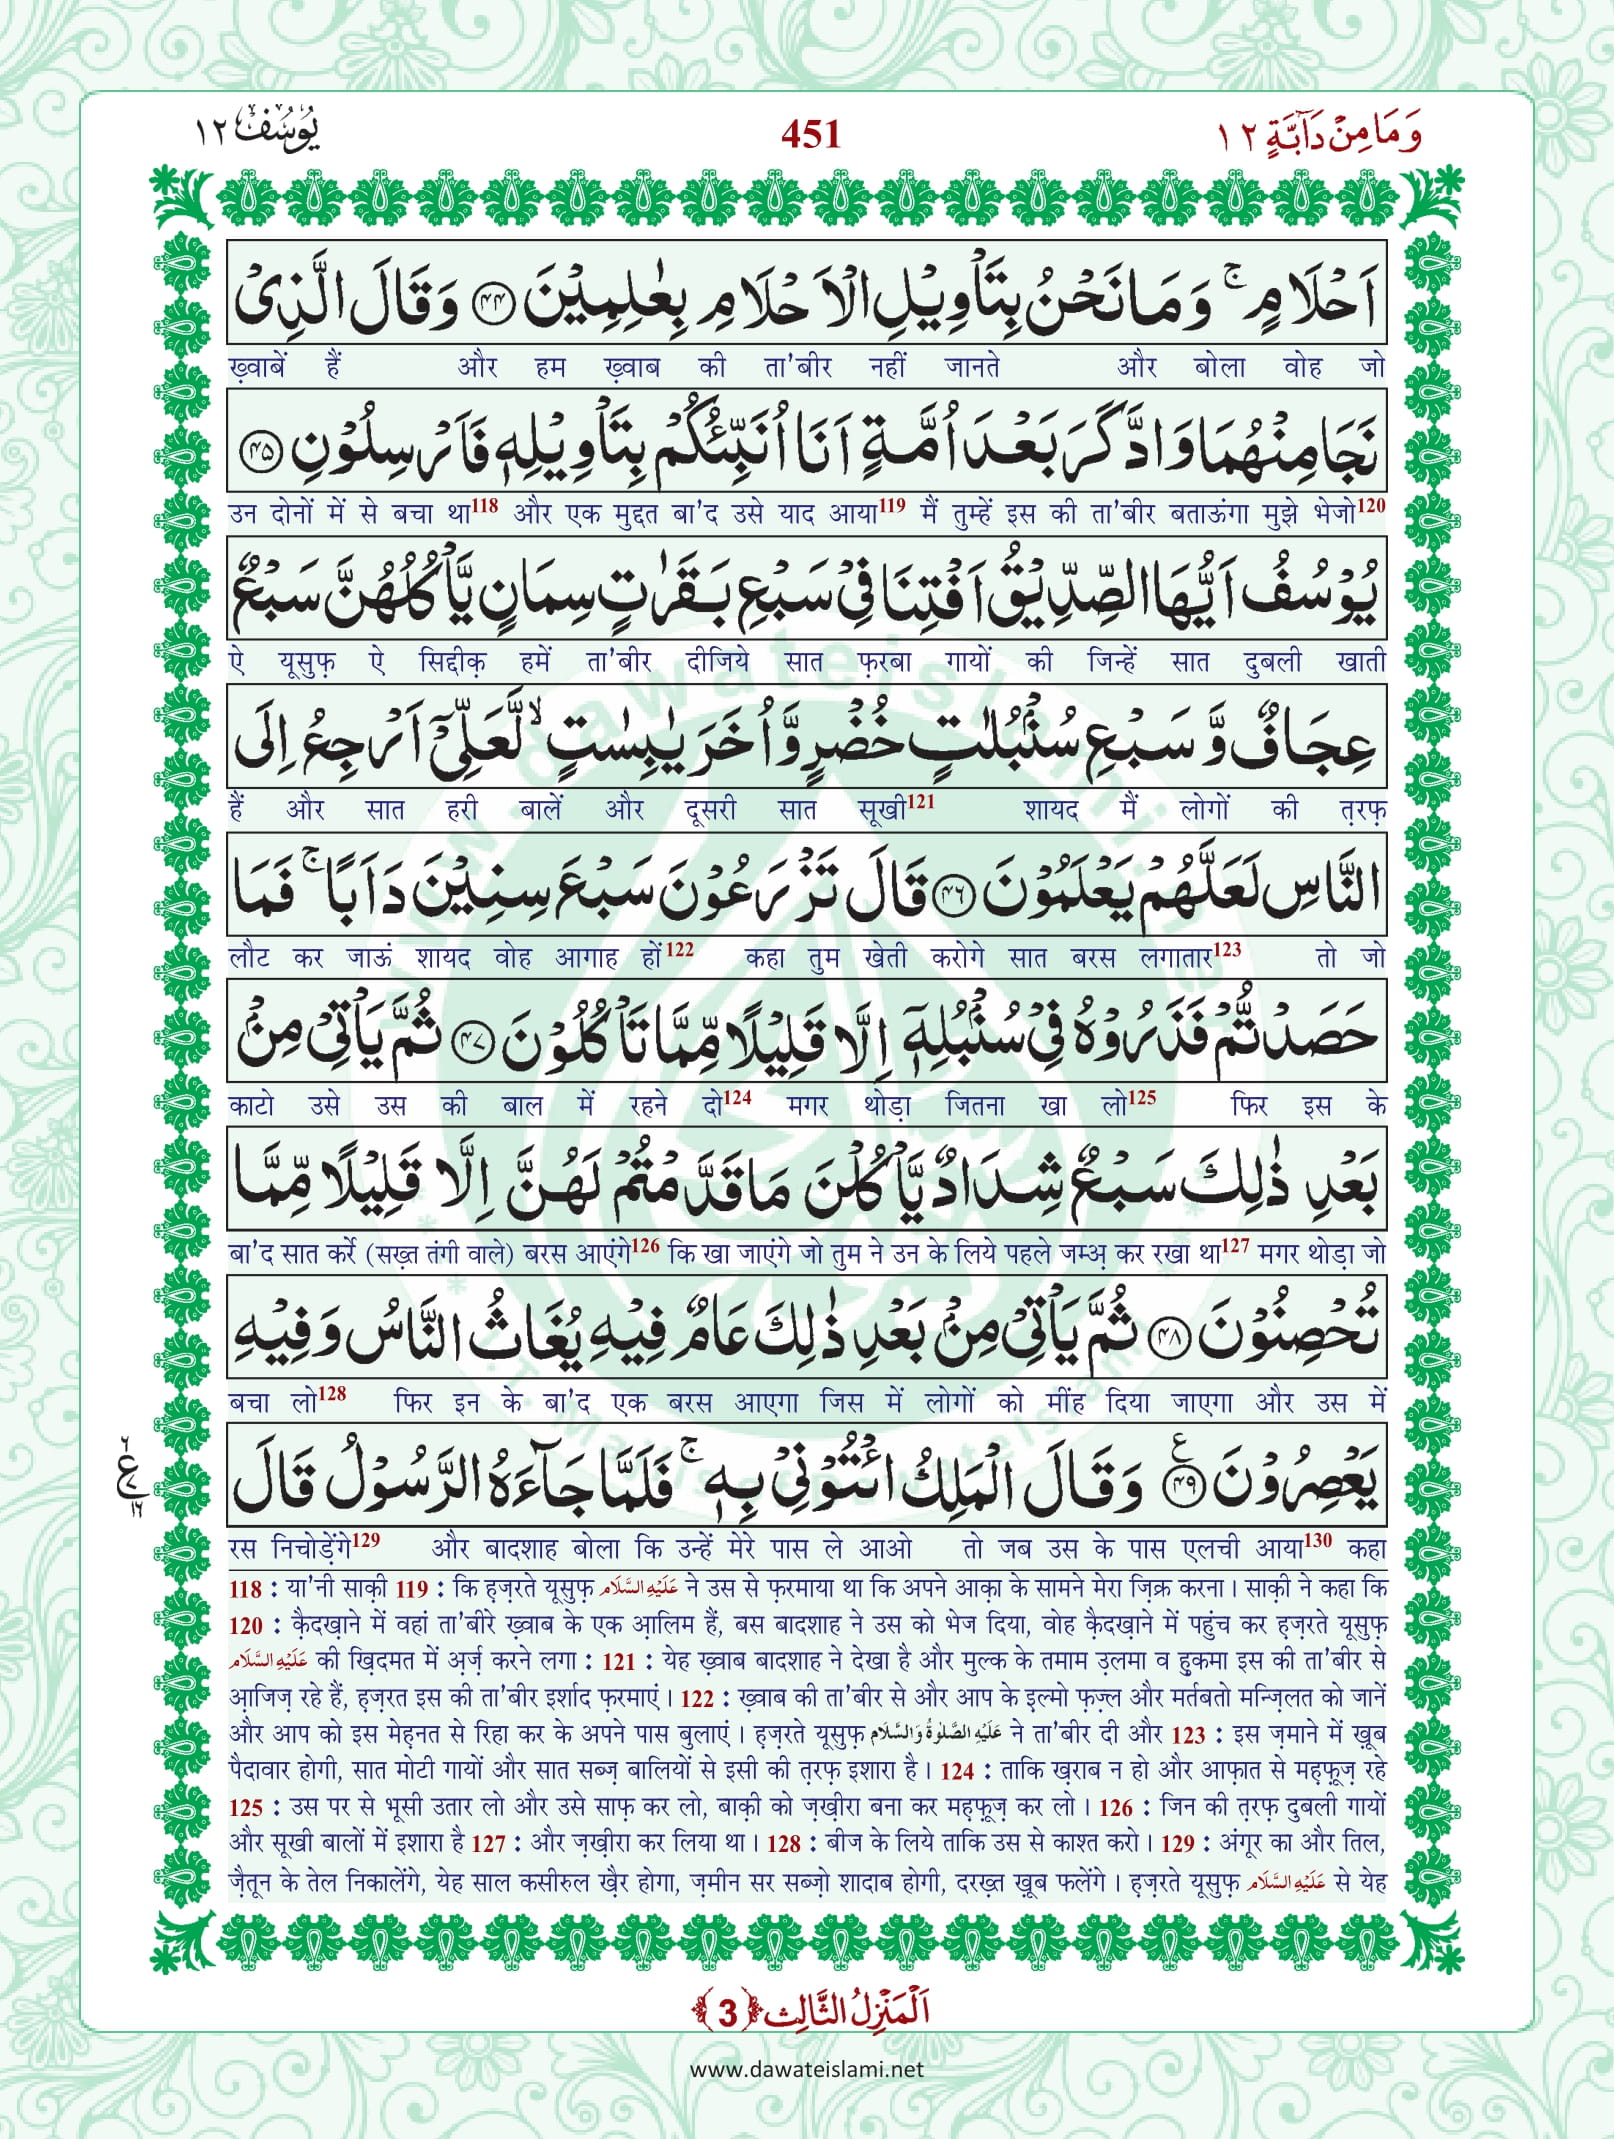 وَمَا مِنْ دَآبَّةٍ ١٢
451
یُوْسُف ١٢
اَحْلَامٍ ۚ وَمَا نَحْنُ بِتَاْوِیْلِ الْاَحْلَامِ بِعٰلِمِیْنَ ﴿۴۴﴾ وَقَالَ الَّذِیْ
ख़्वाबें हैं और हम ख़्वाब की ता'बीर नहीं जानते और बोला वोह जो
نَجَا مِنْهُمَا وَادَّكَرَ بَعْدَ اُمَّةٍ اَنَا اُنَبِّئُكُمْ بِتَاْوِیْلِهٖ فَاَرْسِلُوْنِ ﴿۴۵﴾
उन दोनों में से बचा था118 और एक मुद्दत बा'द उसे याद आया119 मैं तुम्हें इस की ता'बीर बताऊंगा मुझे भेजो120
یُوْسُفُ اَیُّهَا الصِّدِّیْقُ اَفْتِنَا فِیْ سَبْعِ بَقَرٰتٍ سِمَانٍ یَّاْكُلُهُنَّ سَبْعٌ
ऐ यूसुफ़ ऐ सिद्दीक़ हमें ता'बीर दीजिये सात फ़रबा गायों की जिन्हें सात दुबली खाती
عِجَافٌ وَّ سَبْعِ سُنْۢبُلٰتٍ خُضْرٍ وَّاُخَرَ یٰبِسٰتٍ ۙ لَّعَلِّیْۤ اَرْجِعُ اِلَی
हैं और सात हरी बालें और दूसरी सात सूखी121 शायद मैं लोगों की त़रफ़
النَّاسِ لَعَلَّهُمْ یَعْلَمُوْنَ ﴿۴۶﴾ قَالَ تَزْرَعُوْنَ سَبْعَ سِنِیْنَ دَاَبًا ۚ فَمَا
लौट कर जाऊं शायद वोह आगाह हों122 कहा तुम खेती करोगे सात बरस लगातार123 तो जो
حَصَدْتُّمْ فَذَرُوْهُ فِیْ سُنْۢبُلِهٖۤ اِلَّا قَلِیْلًا مِّمَّا تَاْكُلُوْنَ ﴿۴۷﴾ ثُمَّ یَاْتِیْ مِنْۢ
काटो उसे उस की बाल में रहने दो124 मगर थोड़ा जितना खा लो125 फिर इस के
بَعْدِ ذٰلِكَ سَبْعٌ شِدَادٌ یَّاْكُلْنَ مَا قَدَّمْتُمْ لَهُنَّ اِلَّا قَلِیْلًا مِّمَّا
बा'द सात कर्रे (सख़्त तंगी वाले) बरस आएंगे126 कि खा जाएंगे जो तुम ने उन के लिये पहले जम्अ़ कर रखा था127 मगर थोड़ा जो
تُحْصِنُوْنَ ﴿۴۸﴾ ثُمَّ یَاْتِیْ مِنْۢ بَعْدِ ذٰلِكَ عَامٌ فِیْهِ یُغَاثُ النَّاسُ وَفِیْهِ
बचा लो128 फिर इन के बा'द एक बरस आएगा जिस में लोगों को मींह दिया जाएगा और उस में
یَعْصِرُوْنَ ﴿۴۹﴾ ع وَقَالَ الْمَلِكُ ائْتُوْنِیْ بِهٖ ۚ فَلَمَّا جَآءَهُ الرَّسُوْلُ قَالَ
रस निचोड़ेंगे129 और बादशाह बोला कि उन्हें मेरे पास ले आओ तो जब उस के पास एलची आया130 कहा
118 : या'नी साक़ी 119 : कि ह़ज़रते यूसुफ़ عَلَیْهِ السَّلَام ने उस से फ़रमाया था कि अपने आक़ा के सामने मेरा ज़िक्र करना। साक़ी ने कहा कि
120 : क़ैदख़ाने में वहां ता'बीरे ख़्वाब के एक आ़लिम हैं, बस बादशाह ने उस को भेज दिया, वोह क़ैदख़ाने में पहुंच कर ह़ज़रते यूसुफ़
عَلَیْهِ السَّلَام की ख़िदमत में अ़र्ज़ करने लगा : 121 : येह ख़्वाब बादशाह ने देखा है और मुल्क के तमाम उ़लमा व हुकमा इस की ता'बीर से
आ़जिज़ रहे हैं, ह़ज़रत इस की ता'बीर इर्शाद फ़रमाएं। 122 : ख़्वाब की ता'बीर से और आप के इ़ल्मो फ़ज़्ल और मर्तबतो मन्ज़िलत को जानें
और आप को इस मेह़नत से रिहा कर के अपने पास बुलाएं। ह़ज़रते यूसुफ़ عَلَیْهِ الصَّلٰوةُ وَالسَّلَام ने ता'बीर दी और 123 : इस ज़माने में ख़ूब
पैदावार होगी, सात मोटी गायों और सात सब्ज़ बालियों से इसी की त़रफ़ इशारा है। 124 : ताकि ख़राब न हो और आफ़ात से मह़फ़ूज़ रहे
125 : उस पर से भूसी उतार लो और उसे साफ़ कर लो, बाक़ी को ज़ख़ीरा बना कर मह़फ़ूज़ कर लो। 126 : जिन की त़रफ़ दुबली गायों
और सूखी बालों में इशारा है 127 : और ज़ख़ीरा कर लिया था। 128 : बीज के लिये ताकि उस से काश्त करो। 129 : अंगूर का और तिल,
ज़ैतून के तेल निकालेंगे, येह साल कसीरुल ख़ैर होगा, ज़मीन सर सब्ज़ो शादाब होगी, दरख़्त ख़ूब फलेंगे। ह़ज़रते यूसुफ़ عَلَیْهِ السَّلَام से येह
اَلْمَنْزِلُ الثَّالِث ﴿3﴾
www.dawateislami.net